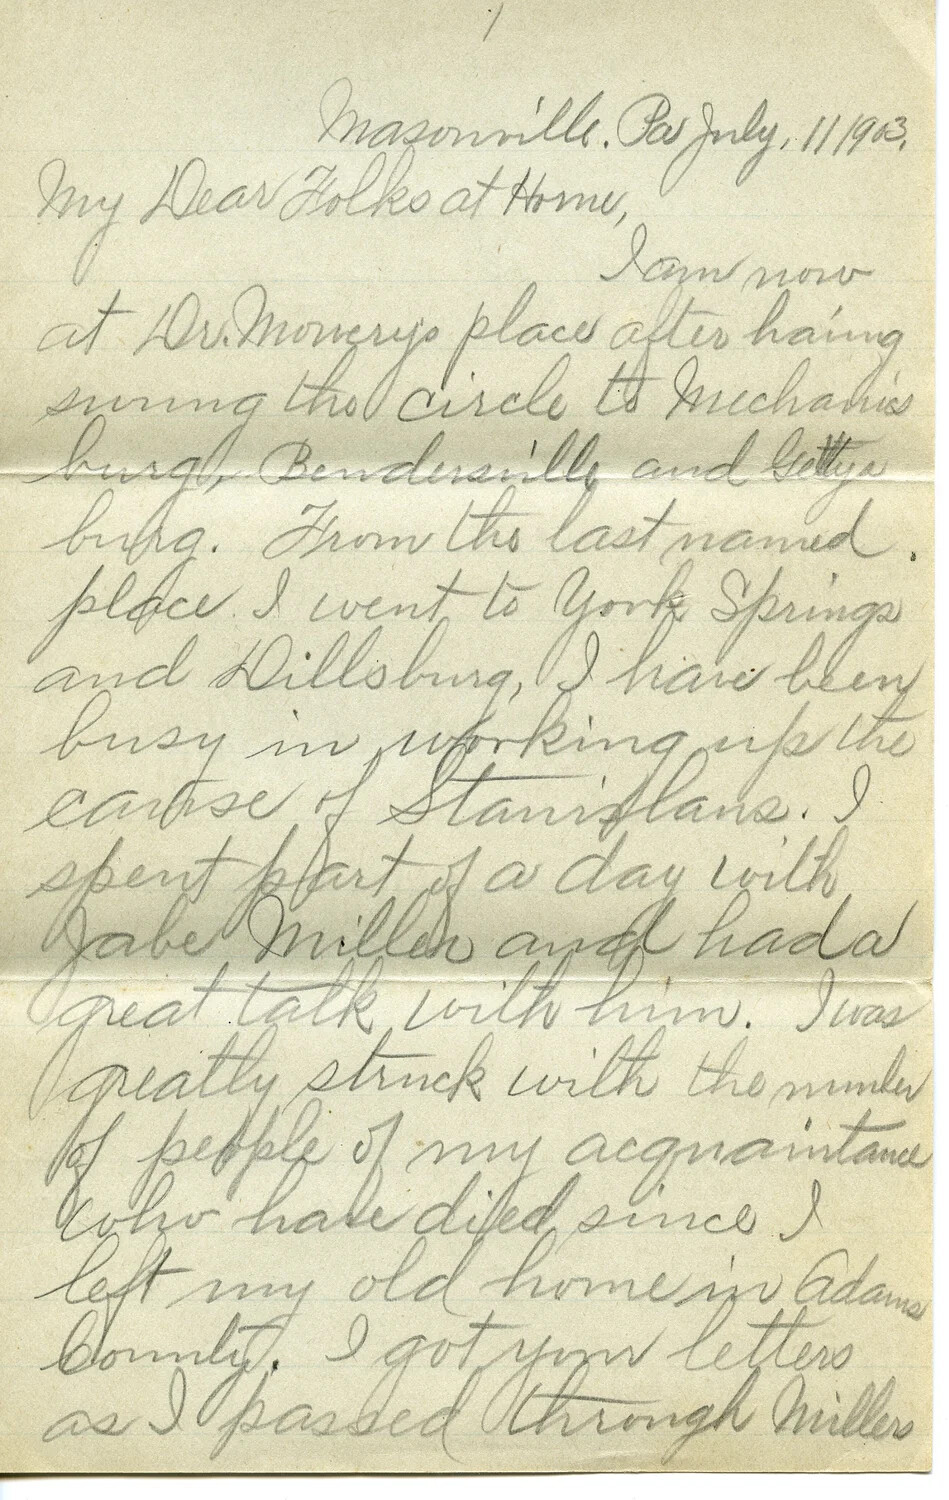 1
Masonville. Pa July, 11 1903.
My Dear Folks at Home,
I am now
at Dr. Mowerys place after having
swung the circle to Mechanics
burg, Bendersville and Gettys
burg. From the last named
place I went to York Springs
and Dillsburg, I have been
busy in working up the
cause of Stanislaus. I
spent part of a day with
Jabe Miller and had a
great talk with him. I was
greatly struck with the number
of people of my acquaintance
who have died since I
left my old home in Adams
County. I got your letters
as I passed through Millers